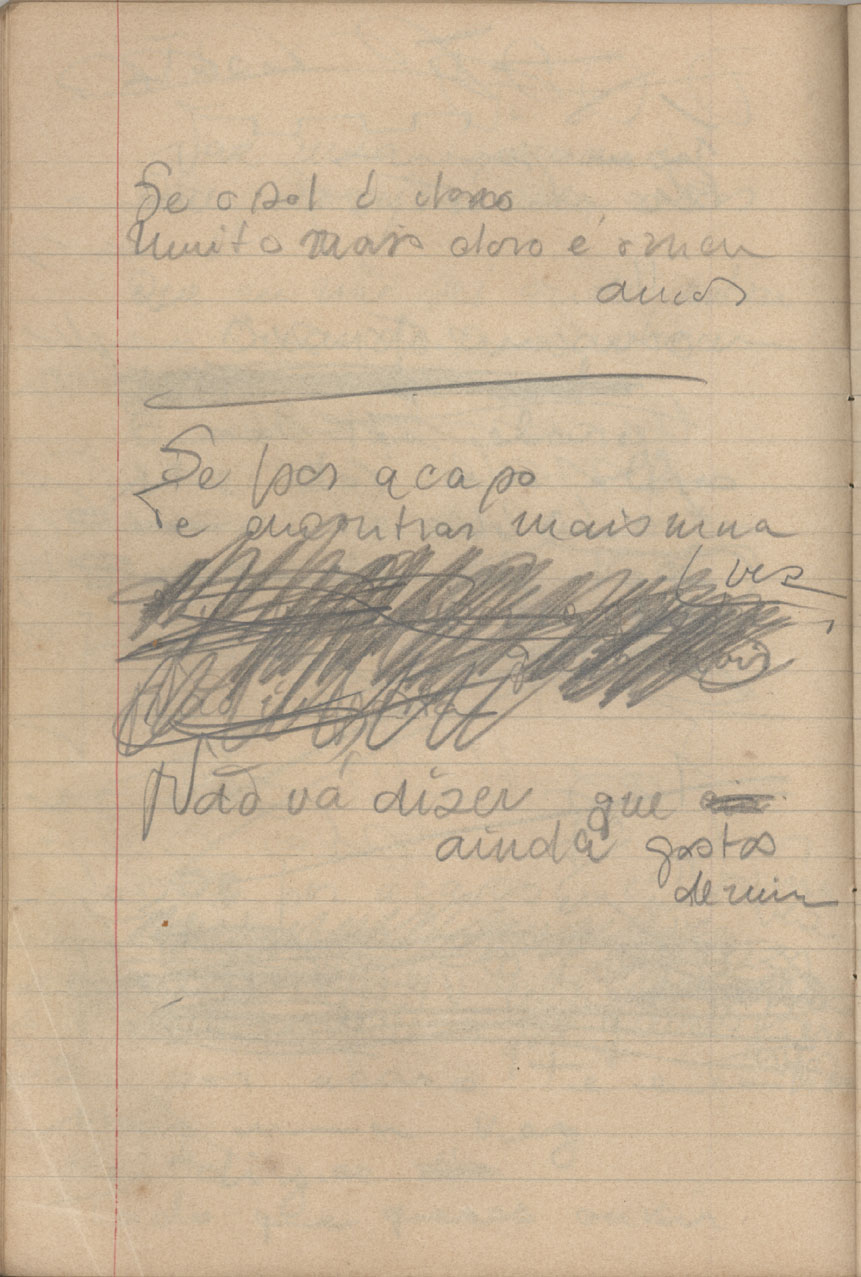 Se o sol é claro
Muito mais claro é o meu
amor
Se por acaso
Te encontrar mais uma
vez
Não
Não vá dizer que
ainda gostas
de mim